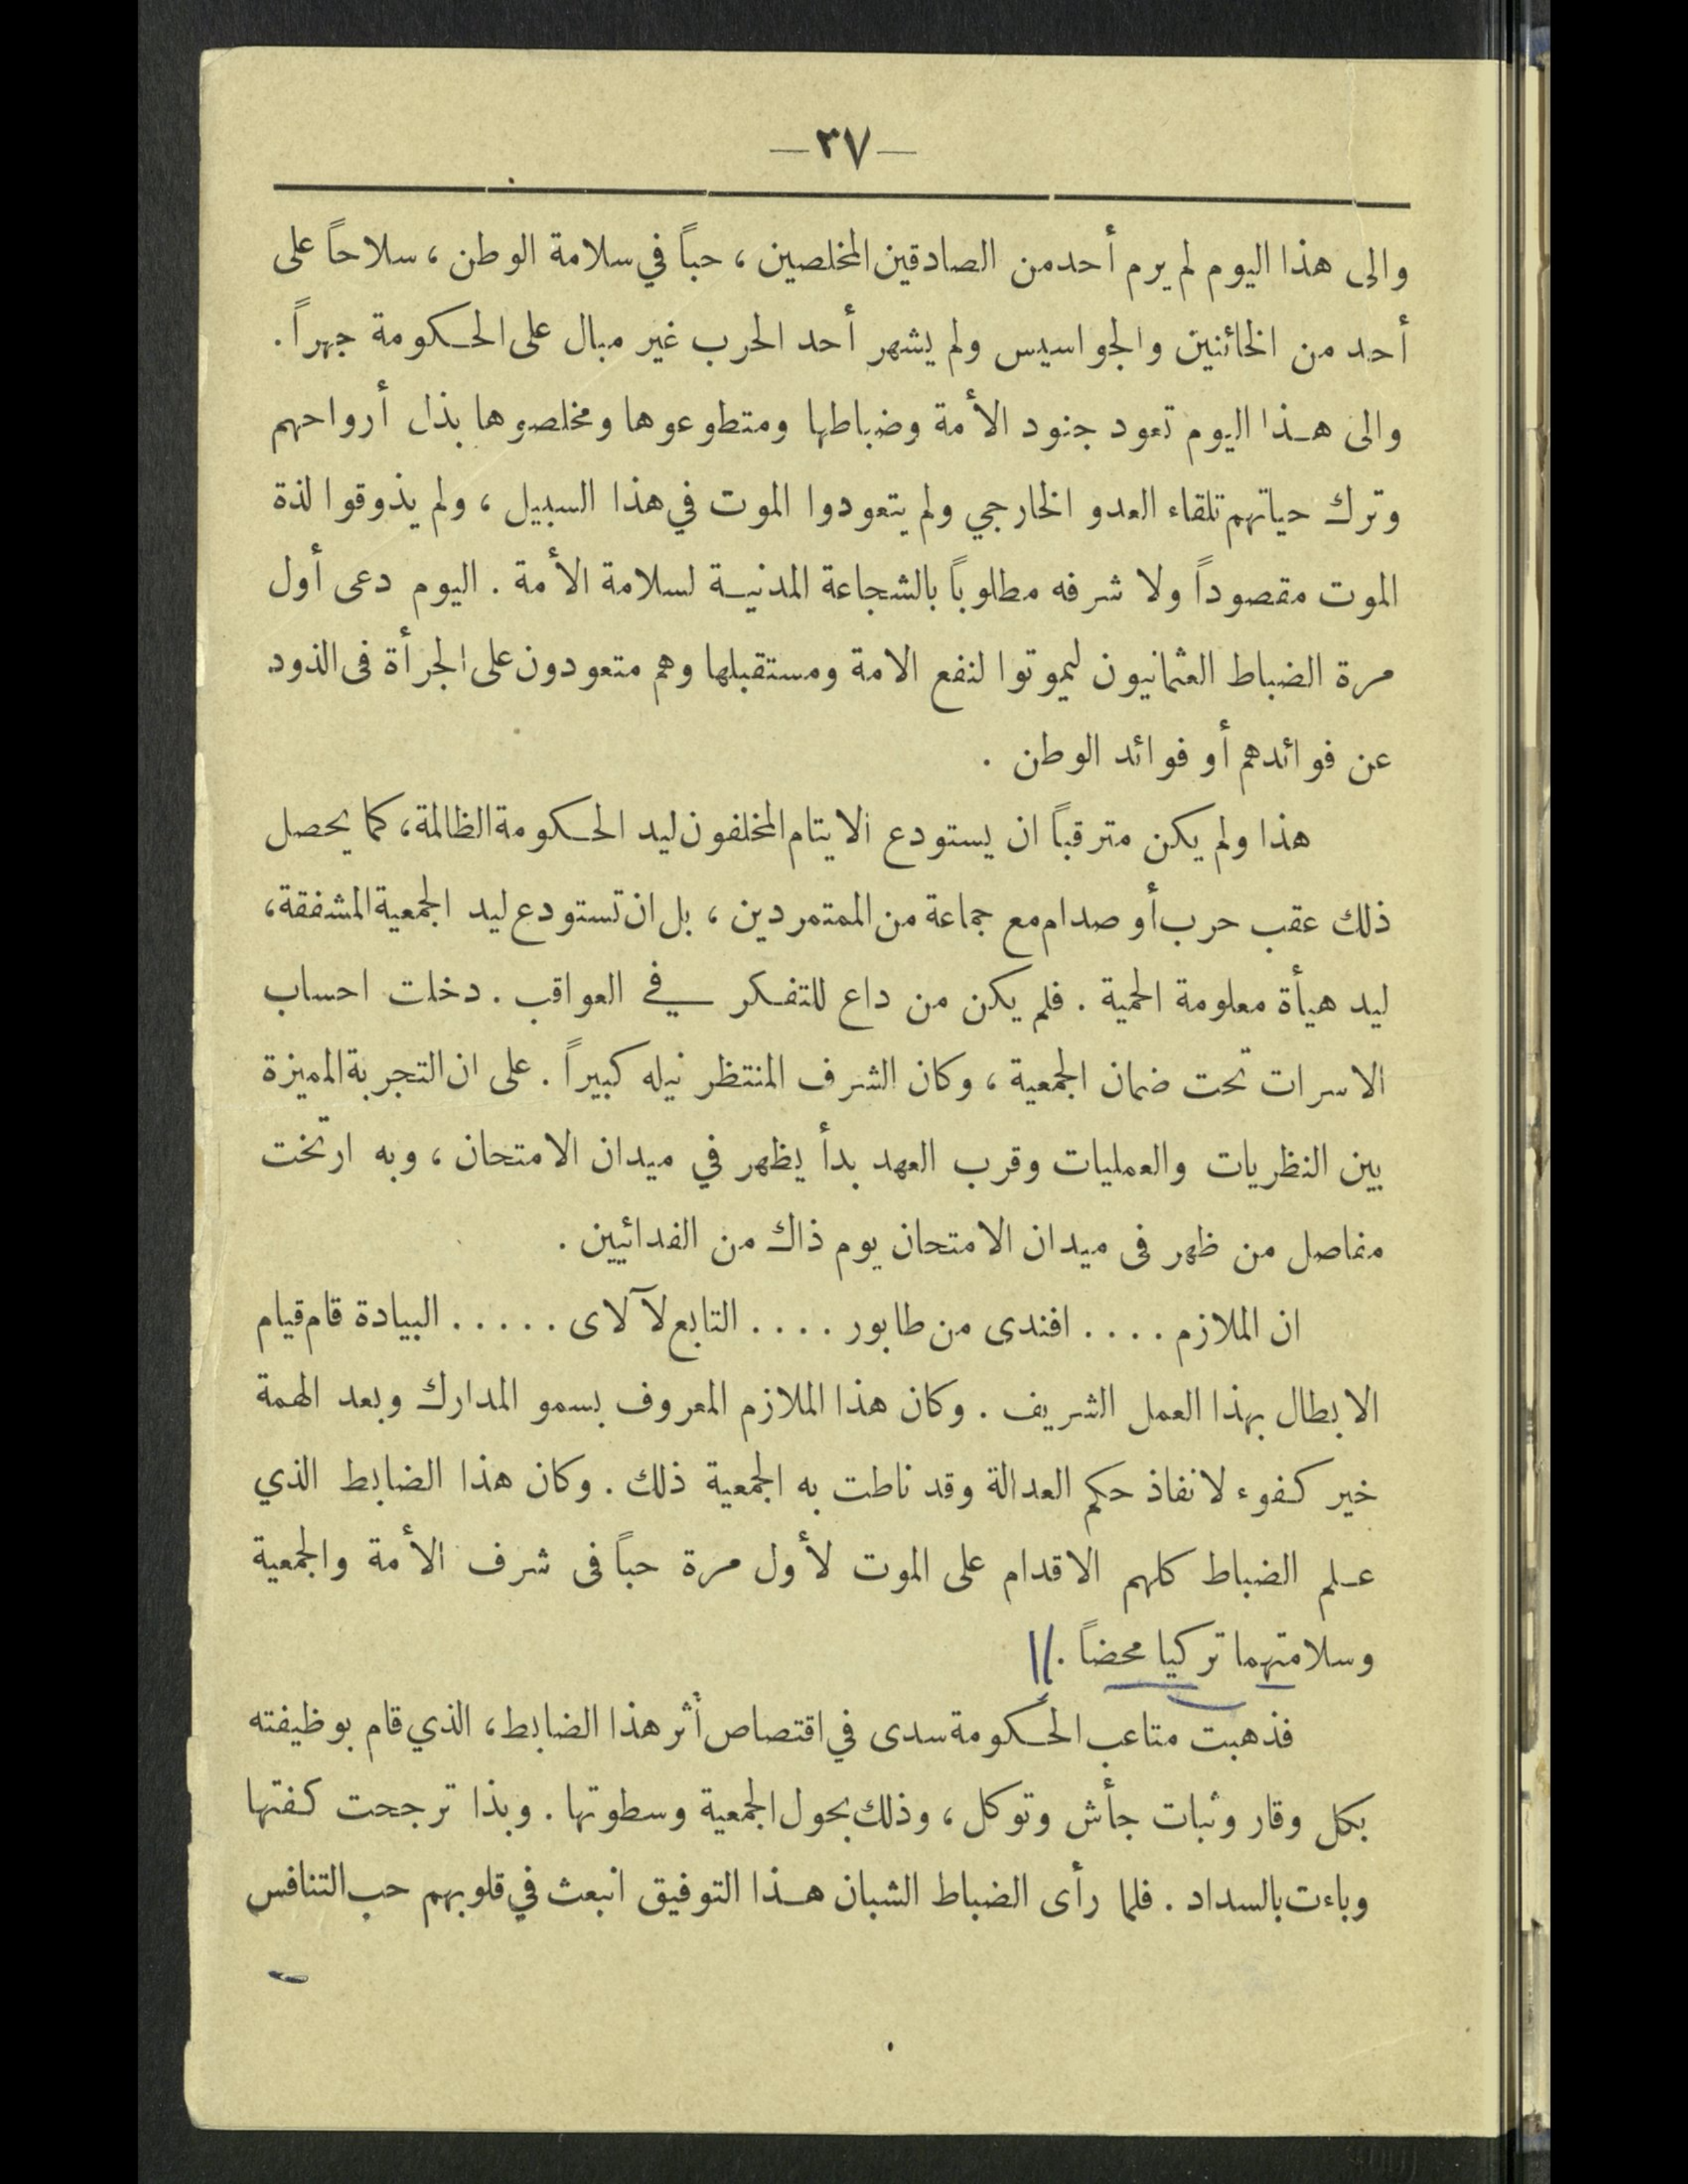 —٣٧—
والى هذا اليوم لم يرم أحد من الصادقين المخلصين ، حباً في سلامة الوطن ، سلاحاً على
أحد من الخائنين والجواسيس ولم يشهر أحد الحرب غير مبال على الحكومة جهراً .
والى هذا اليوم تعود جنود الأمة وضباطها ومتطوعوها ومخلصوها بذل أرواحهم
وترك حياتهم تلقاء العدو الخارجي ولم يتعودوا الموت في هذا السبيل ، ولم يذوقوا لذة
الموت مقصوداً ولا شرفه مطلوباً بالشجاعة المدنية لسلامة الأمة . اليوم دعى أول
مرة الضباط العثمانيون ليموتوا لنفع الامة ومستقبلها وهم متعودون على الجرأة فى الذود
عن فوائدهم أو فوائد الوطن .
هذا ولم يكن مترقباً ان يستودع الايتام المخلفون ليد الحكومة الظالمة، كما يحصل
ذلك عقب حرب أو صدام مع جماعة من المتمردين ، بل ان تستودع ليد الجمعية المشفقة،
ليد هيأة معلومة الحمية . فلم يكن من داع للتفكر في العواقب . دخلت احساب
الاسرات تحت ضمان الجمعية ، وكان الشرف المنتظر نيله كبيراً . على ان التجربة المميزة
بين النظريات والعمليات وقرب العهد بدأ يظهر في ميدان الامتحان ، وبه ارتخت
مفاصل من ظهر فى ميدان الامتحان يوم ذاك من الفدائيين .
ان الملازم . . . . افندى من طابور . . . . التابع لآلاى . . . . . البيادة قام قيام
الابطال بهذا العمل الشريف . وكان هذا الملازم المعروف بسمو المدارك وبعد الهمة
خير كفوء لانفاذ حكم العدالة وقد ناطت به الجمعية ذلك . وكان هذا الضابط الذي
علم الضباط كلهم الاقدام على الموت لأول مرة حباً فى شرف الأمة والجمعية
وسلامتهما تركيا محضاً .
فذهبت متاعب الحكومة سدى في اقتصاص أثر هذا الضابط، الذي قام بوظيفته
بكل وقار وثبات جأش وتوكل ، وذلك بحول الجمعية وسطوتها . وبذا ترجحت كفتها
وباءت بالسداد . فلما رأى الضباط الشبان هذا التوفيق انبعث في قلوبهم حب التنافس